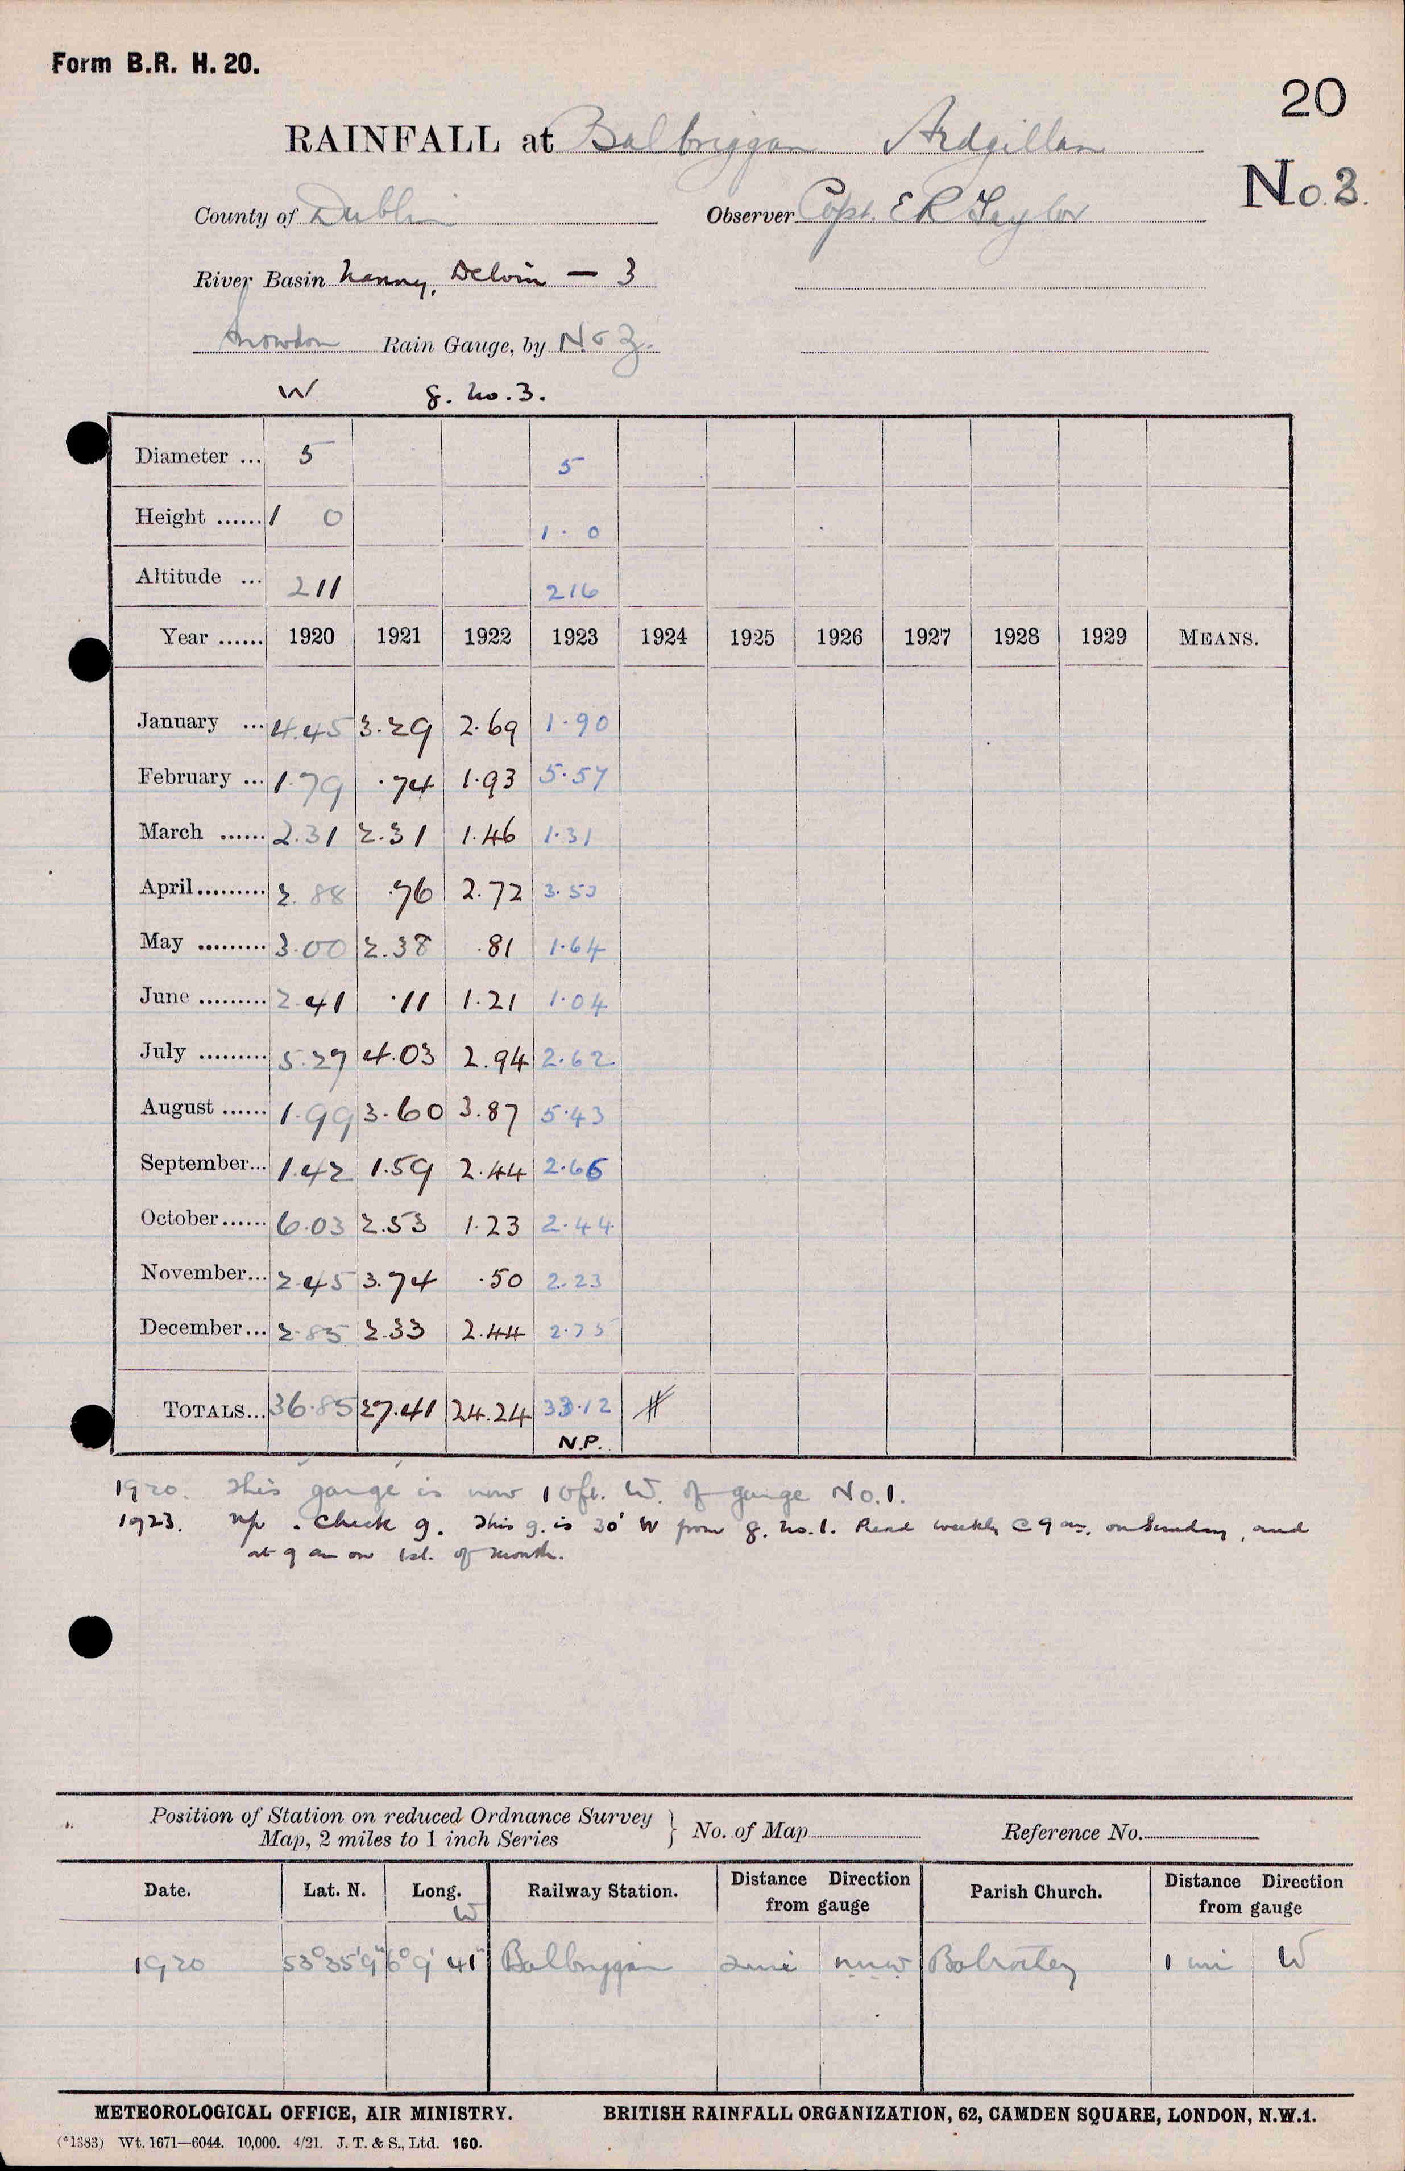 Form B.R. H. 20.
20
RAINFALL at Balbriggan Ardgillan
No. 3.
County of Dublin Observer Capt. E R Taylor
River Basin Nanny, Delvin — 3
Snowdon Rain Gauge, by N & Z.
W g. No. 3.
Diameter ... 5 5
Height ...... 1 0 1 · 0
Altitude ... 211 216
Year ...... 1920 1921 1922 1923 1924 1925 1926 1927 1928 1929 MEANS.
January ... 4.45 3.29 2.69 1.90
February ... 1.79 .74 1.93 5.57
March ...... 2.31 2.31 1.46 1.31
April......... 2.88 .76 2.72 3.53
May ......... 3.00 2.38 .81 1.64
June ......... 2.41 .11 1.21 1.04
July ......... 5.27 4.03 2.94 2.62
August ...... 1.99 3.60 3.87 5.43
September... 1.42 1.59 2.44 2.66
October...... 6.03 2.53 1.23 2.44
November... 2.45 3.74 .50 2.23
December... 2.85 2.33 2.44 2.75
TOTALS... 36.85 27.41 24.24 33.12
N.P.
1920. This gauge is now 10ft. W. of gauge No. 1.
1923. np. Check g. This g. is 30' W from g. no. 1. Read weekly @ 9 am. on Sunday, and
at 9 am on 1st. of month.
Position of Station on reduced Ordnance Survey
Map, 2 miles to 1 inch Series } No. of Map Reference No.
Date. Lat. N. Long. W Railway Station. Distance Direction from gauge Parish Church. Distance Direction from gauge
1920 53° 35' 9" 6° 9' 41" Balbriggan 2 mi NNW Balrothery 1 mi W
METEOROLOGICAL OFFICE, AIR MINISTRY. BRITISH RAINFALL ORGANIZATION, 62, CAMDEN SQUARE, LONDON, N.W.1.
(*1383) Wt. 1671—6044. 10,000. 4/21. J. T. & S., Ltd. 160.